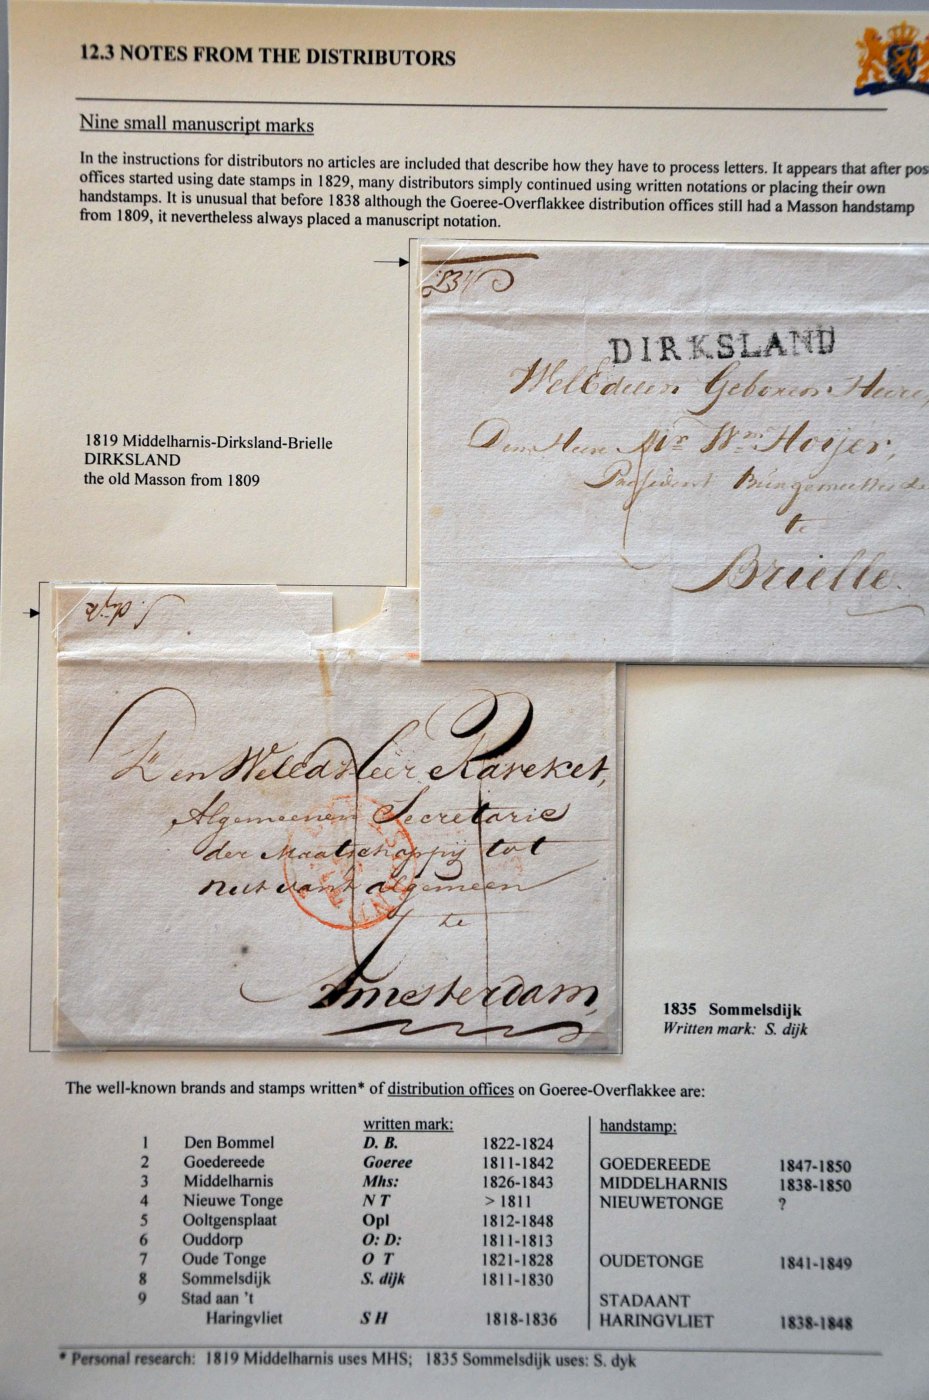 12.3 NOTES FROM THE DISTRIBUTORS
Nine small manuscript marks
In the instructions for distributors no articles are included that describe how they have to process letters. It appears that after pos
offices started using date stamps in 1829, many distributors simply continued using written notations or placing their own
handstamps. It is unusual that before 1838 although the Goeree-Overflakkee distribution offices still had a Masson handstamp
from 1809, it nevertheless always placed a manuscript notation.
DIRKSLAND
WelEdelen Geboren Heere,
Den Heere Mr Wm Hoijer,
President Burgemeester
te
Brielle.
1819 Middelharnis-Dirksland-Brielle
DIRKSLAND
the old Masson from 1809
S. dijk
Den WelEd Heer Kareket,
Algemeenen Secretaris
der Maatschappij tot
Nut van't algemeen
te
Amsterdam,
1835 Sommelsdijk
Written mark: S. dijk
The well-known brands and stamps written* of distribution offices on Goeree-Overflakkee are:
written mark: handstamp:
1 Den Bommel D. B. 1822-1824
2 Goedereede Goeree 1811-1842 GOEDEREEDE 1847-1850
3 Middelharnis Mhs: 1826-1843 MIDDELHARNIS 1838-1850
4 Nieuwe Tonge N T > 1811 NIEUWETONGE ?
5 Ooltgensplaat Opl 1812-1848
6 Ouddorp O: D: 1811-1813
7 Oude Tonge O T 1821-1828 OUDETONGE 1841-1849
8 Sommelsdijk S. dijk 1811-1830
9 Stad aan 't STADAANT
Haringvliet S H 1818-1836 HARINGVLIET 1838-1848
* Personal research: 1819 Middelharnis uses MHS; 1835 Sommelsdijk uses: S. dyk